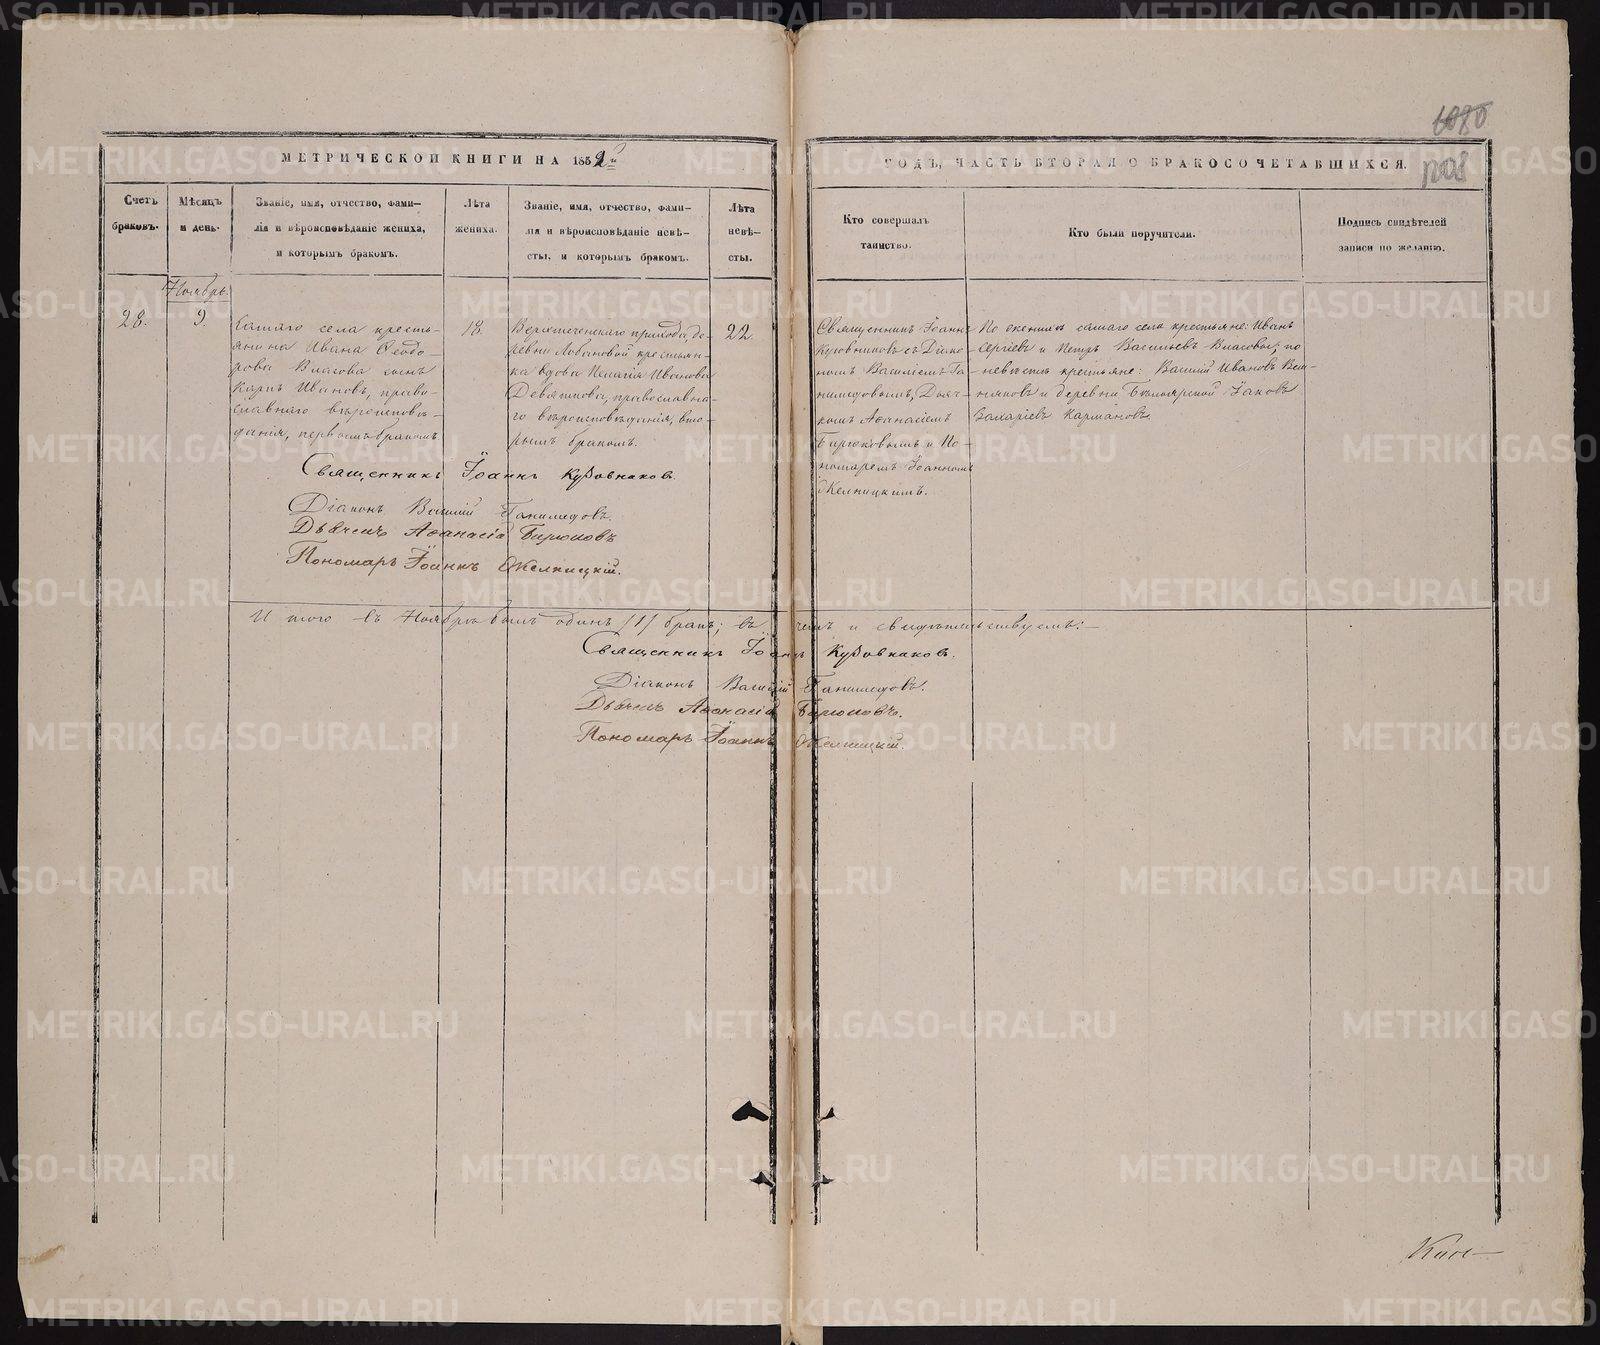 МЕТРИЧЕСКОЙ КНИГИ НА 1852й
ГОДЪ, ЧАСТЬ ВТОРАЯ О БРАКОСОЧЕТАВШИХСЯ.
1080
1208
Счетъ
браковъ.
Мѣсяцъ
и день.
Званіе, имя, отчество, фами-
лія и вѣроисповѣданіе жениха,
и которымъ бракомъ.
Лѣта
жениха.
Званіе, имя, отчество, фами-
лія и вѣроисповѣданіе невѣ-
сты, и которымъ бракомъ.
Лѣта
невѣ-
сты.
Кто совершалъ
таинство.
Кто были поручители.
Подпись свидѣтелей
записи по желанію.
Ноябрь.
28.
9.
Самаго села кресть-
янина Ивана Ѳеодо-
рова Власова сынъ
Карпъ Ивановъ, право-
славнаго вѣроисповѣ-
данія, первымъ бракомъ
18.
прихода, де-
ревни Лобановой крестьян-
ка вдова Пелагія Иванова
Девяткова, православна-
го вѣроисповѣданія, вто-
рымъ бракомъ.
22.
Священникъ Іоаннъ
Кудовниковъ съ Діако-
номъ Василіемъ Га-
нимедовымъ, Дьяч-
комъ Аѳанасіемъ
Бирюковымъ и По-
номаремъ Іоанномъ
Желницкимъ.
По женихѣ самаго села крестьяне: Иванъ
Сергіевъ и Петръ Васильевъ Власовы; по
невѣстѣ крестьяне: Василій Ивановъ
и деревни Бѣлоярской Іаковъ
Захаріевъ Кармановъ.
Священникъ Іоаннъ Кудовниковъ.
Діаконъ Василій Ганимедовъ.
Дьячекъ Аѳанасій Бирюковъ
Пономарь Іоаннъ Желницкій.
И того въ Ноябрѣ былъ одинъ /1/ бракъ; въ чемъ и свидѣтельствуемъ:—
Священникъ Іоаннъ Кудовниковъ.
Діаконъ Василій Ганимедовъ.
Дьячекъ Аѳанасій Бирюковъ.
Пономарь Іоаннъ Желницкій.
METRIKI.GASO-URAL.RU